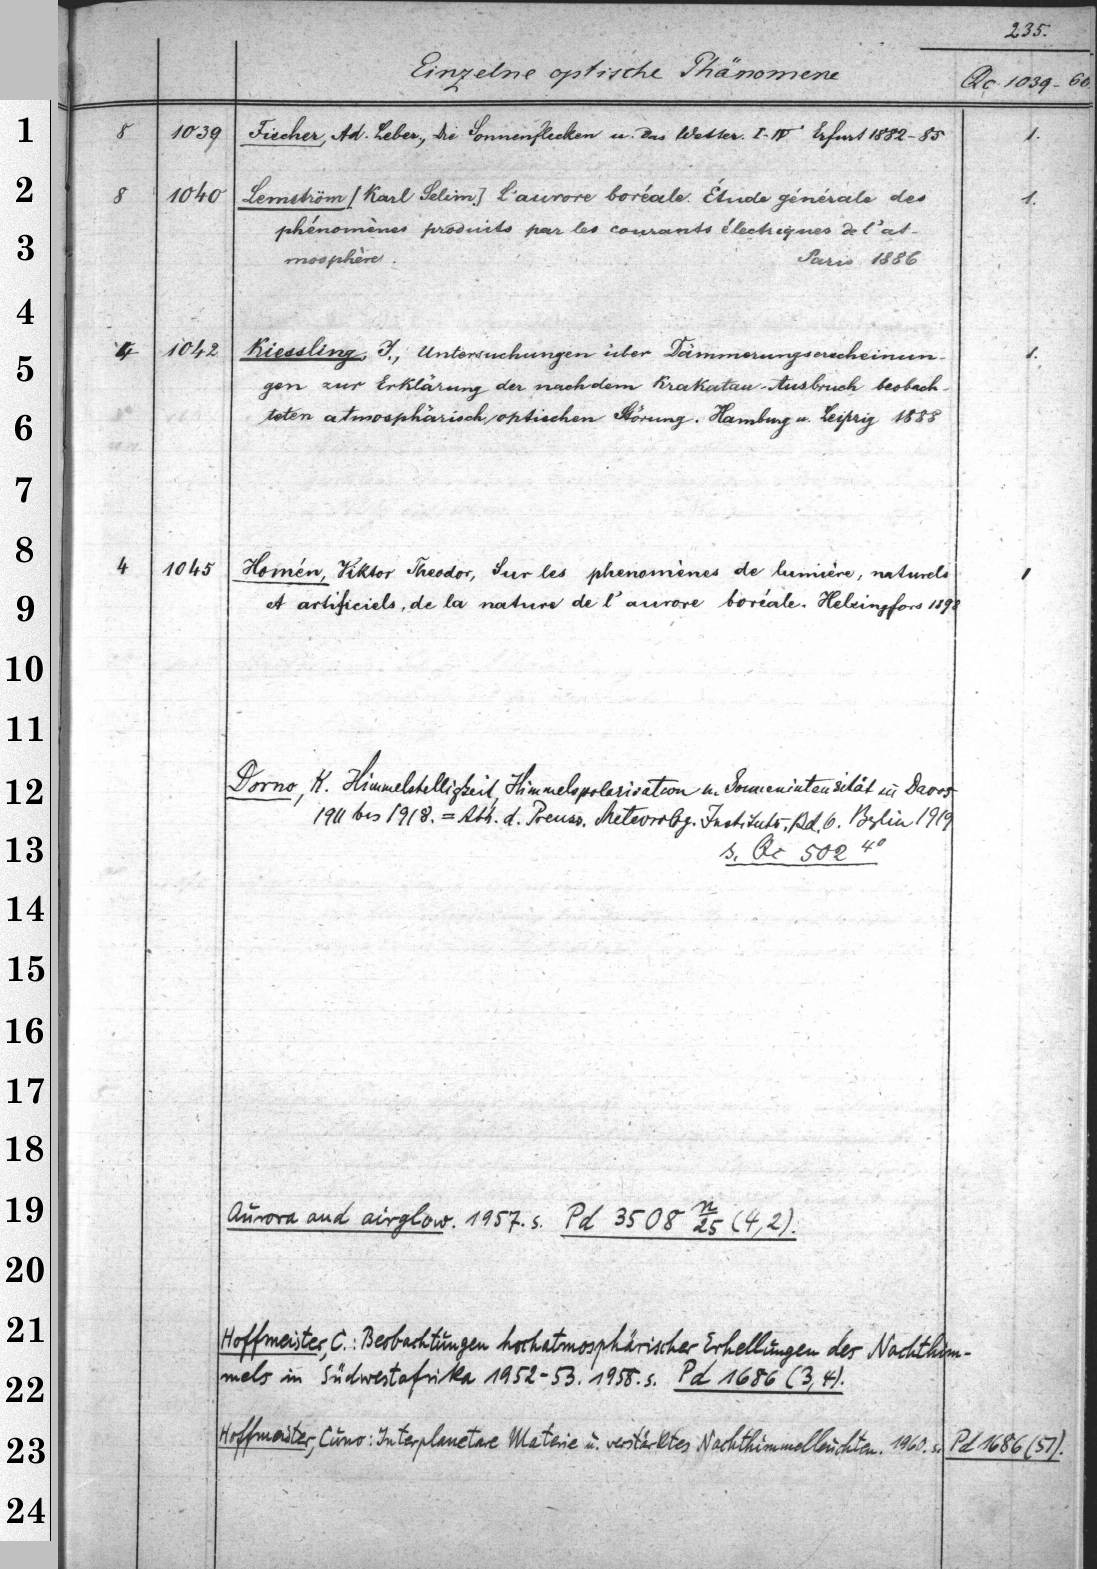 235.
Einzelne optische Phänomene Qc 1039-60
1 8 1039 Fischer, Ad. Leber, Die Sonnenflecken u. das Wetter. I-IV Erfurt 1882-85 1.
2 8 1040 Lemström [Karl Selim] L'aurore boréale. Étude générale des 1.
phénomènes produits par les courants électriques de l'at-
3 mosphère. Paris 1886
4
5 4 1042 Kiessling, J., Untersuchungen über Dämmerungserscheinun- 1.
gen zur Erklärung der nach dem Krakatau-Ausbruch beobach-
6 teten atmosphärisch, optischen Störung. Hamburg u. Leipzig 1888
7
8 4 1045 Homén, Viktor Theodor, Sur les phenomènes de lumière, naturels 1
9 et artificiels, de la nature de l'aurore boréale. Helsingfors 1898
10
11
12 Dorno, K. Himmelshelligkeit, Himmelspolarisation u. Sonnenintensität in Davos
1911 bis 1918. = Abh. d. Preuss. Meteorolog. Instituts, Bd. 6. Berlin 1919
13 s. Qc 502 4°
14
15
16
17
18
19 Aurora and airglow. 1957. s. Pd 3508 n/25 (4,2).
20
21 Hoffmeister, C.: Beobachtungen hochatmosphärischer Erhellungen des Nachthim-
22 mels in Südwestafrika 1952-53. 1958. s. Pd 1686 (3,4).
23 Hoffmeister, Cuno: Interplanetare Materie u. verstärktes Nachthimmelleuchten. 1960. s. Pd 1686 (51).
24